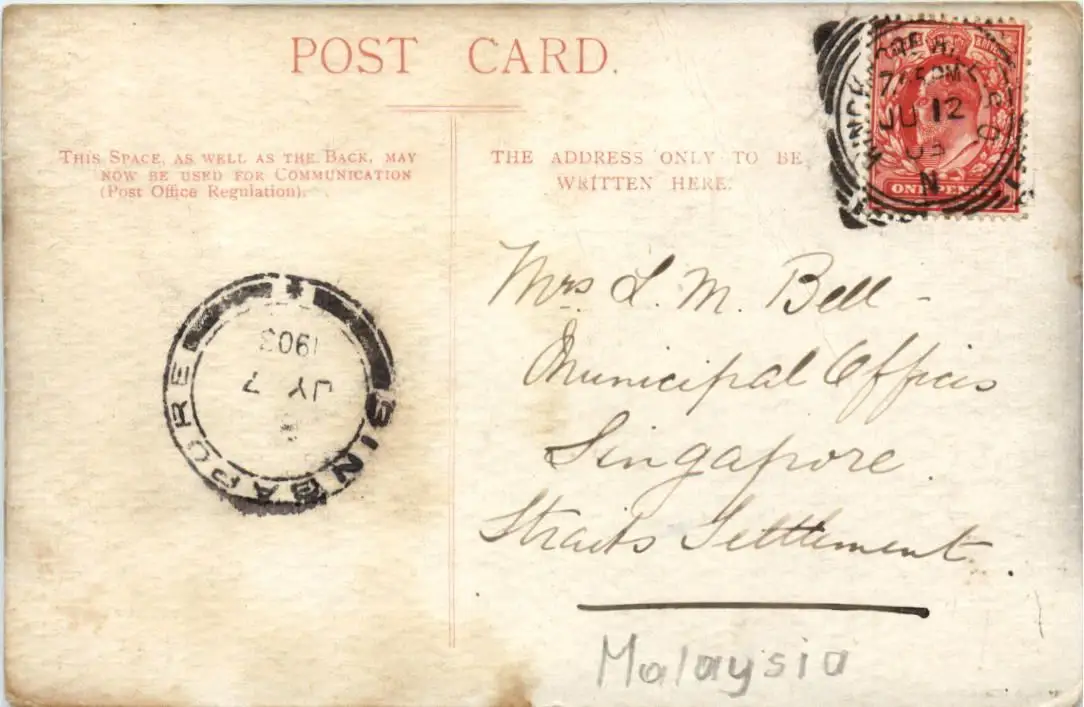 POST CARD.
THIS SPACE, AS WELL AS THE BACK, MAY
NOW BE USED FOR COMMUNICATION
(Post Office Regulation).
THE ADDRESS ONLY TO BE
WRITTEN HERE.
JU 12
03
N
ONE PENNY
Mrs L. M. Bell -
Municipal Offices
Singapore.
Straits Settlement.
Malaysia
SINGAPORE
JY 7
1903